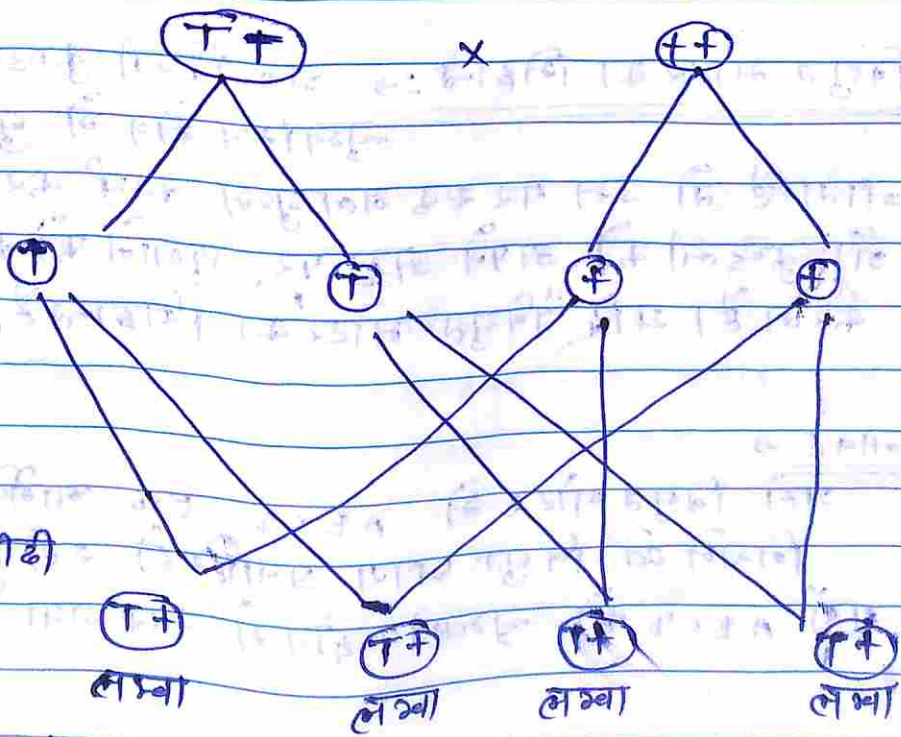 TT × tt
T T t t
Tt Tt Tt Tt
लम्बा लम्बा लम्बा लम्बा